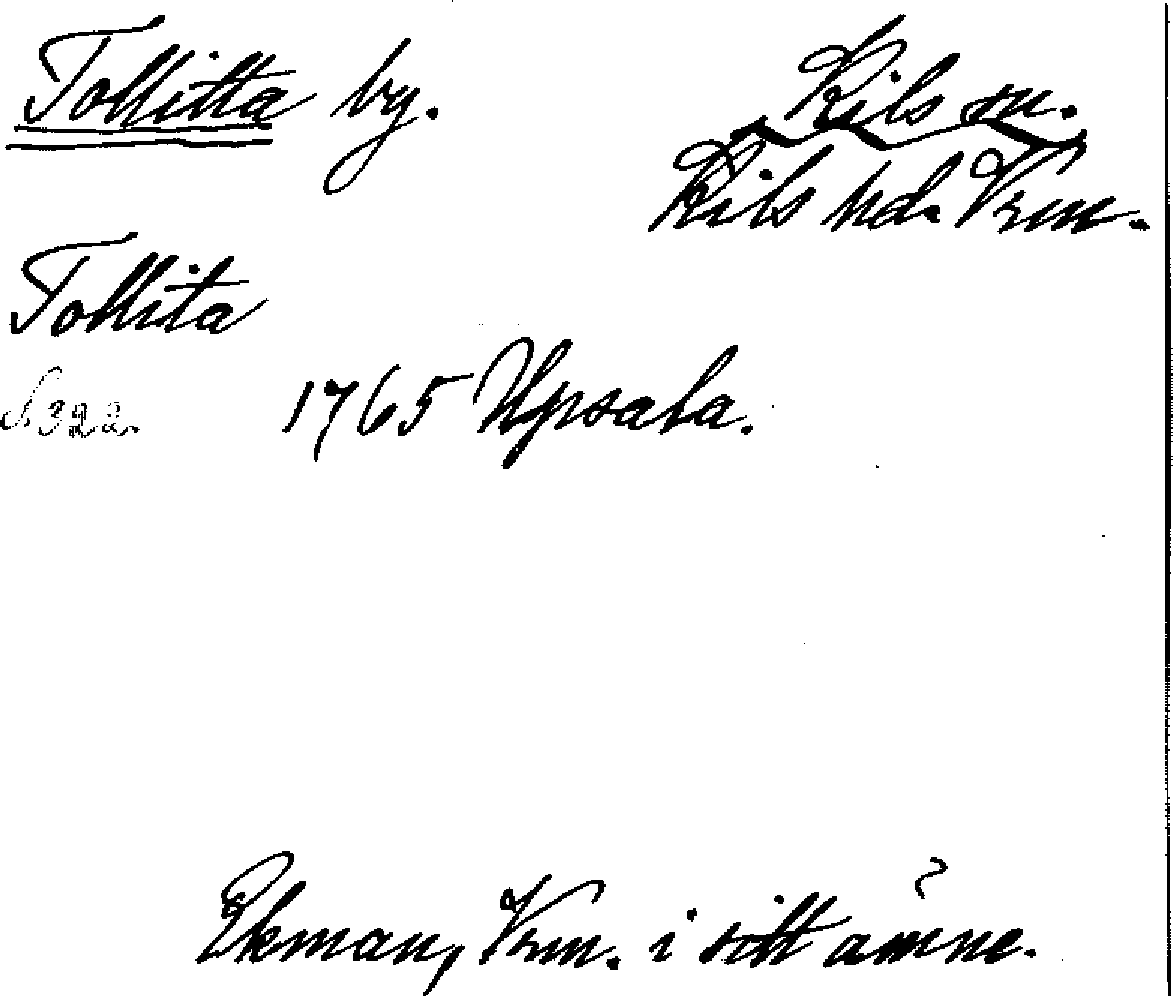 Tollitta by.
Kils sn.
Kils hd. Vrm.
Tollita
S. 322. 1765 Upsala.
Ekman, Vrm. i sitt ämne.